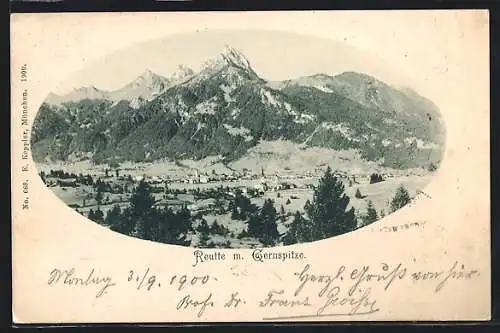 No. 682. E. Koppler, München. 1900.
Reutte m. Gernspitze.
Montag 3./9. 1900. Herzl. Gruß von hier
Prof. Dr. Franz